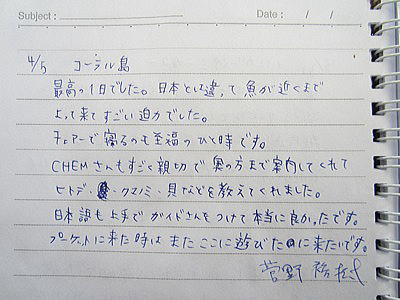 Subject : Date : / /
4/5 コーラル島
最高の1日でした。日本とは違って魚が近くまで
よって来てすごい迫力でした。
チェアーで寝るのも至福のひと時です。
CHEMさんもすごく親切で奥の方まで案内してくれて
ヒトデ・クマノミ・貝などを教えてくれました。
日本語も上手でガイドさんをつけて本当に良かったです。
プーケットに来た時はまたここに遊びに来たいです。
菅野